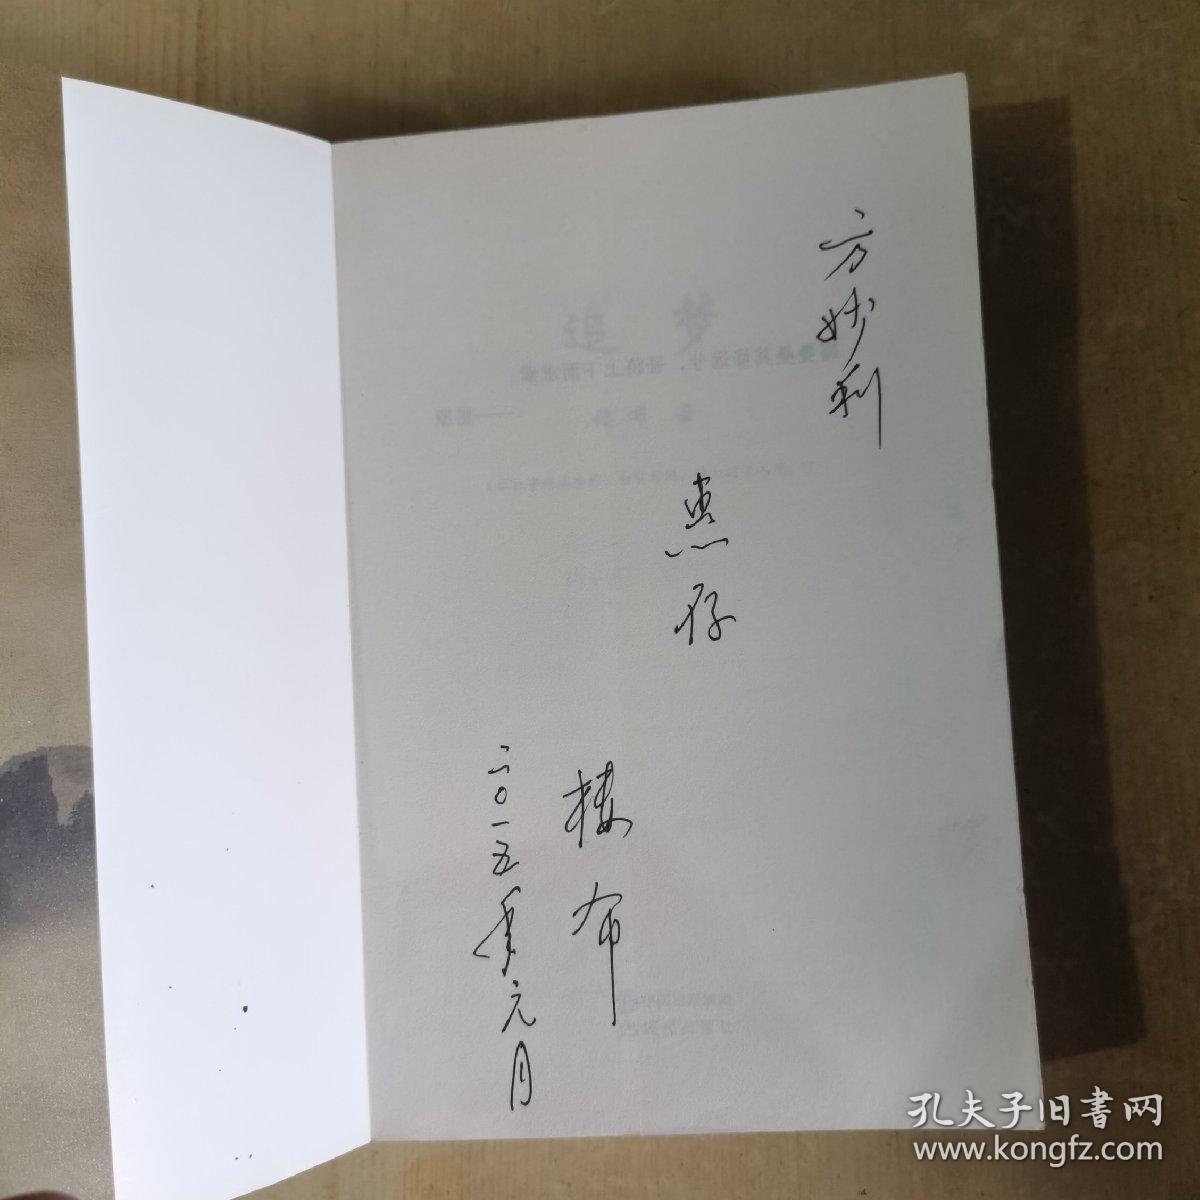 方妙利
惠存
楼布
二〇一五年元月
追梦
孔夫子旧書网
www.kongfz.com